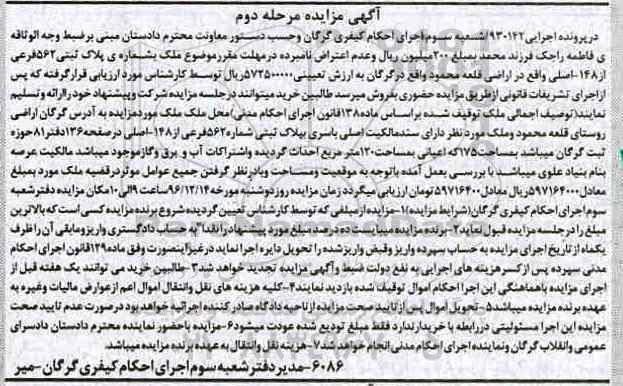 آگهی مزایده مرحله دوم
در پرونده اجرایی ۹۳۰۱۴۲/شعبه سوم اجرای احکام کیفری گرگان وحسب دستور معاونت محترم دادستان مبنی برضبط وجه الوثاقه
ی فاطمه راجک فرزند محمد بمبلغ ۲۰۰میلیون ریال وعدم اعتراض نامبرده درمهلت مقررموضوع ملک بشماره ی پلاک ثبتی ۵۶۲فرعی
از۱۴۸-اصلی واقع در اراضی قلعه محمود واقع درگرگان به ارزش تعیینی ۵۷۲۵۰۰۰۰۰ریال توسط کارشناس مورد ارزیابی قرارگرفته که پس
ازاجرای تشریفات قانونی ازطریق مزایده حضوری بفروش میرسد طالبین خرید میتوانند درجلسه مزایده شرکت وپیشنهاد خودراارائه وتسلیم
نمایند(توصیف اجمالی ملک توقیف شده براساس ماده۱۳۸قانون اجرای احکام مدنی)محل ملک ملک موردمزایده به آدرس گرگان اراضی
روستای قلعه محمود وملک مورد نظر دارای سندمالکیت اصلی باسری بپلاک ثبتی شماره۵۶۲فرعی از۱۴۸-اصلی درصفحه۱۳۶دفتر۸۱حوزه
ثبت گرگان میباشد بمساحت۱۷۵که اعیانی بمساحت۱۲۰متر مربع احداث گردیده واشتراکات آب و برق وگازموجود میباشد مالکیت عرصه
بنام بنیاد علوی میباشد با بررسی بعمل آمده باتوجه به موقعیت ومساحت وبادرنظر گرفتن جمیع عوامل موثردرقضیه ملک مورد بمبلغ
معادل۵۹۷۱۶۴۰۰۰ریال معادل۵۹۷۱۶۴۰۰تومان ارزیابی میگردد زمان مزایده روزدوشنبه مورخه ۹۶/۱۲/۱۴ساعت ۹الی۱۰مکان مزایده دفترشعبه
سوم اجرای احکام کیفری گرگان(شرایط مزایده)۱-مزایده ازمبلغی که توسط کارشناس تعیین گردیده شروع برنده مزایده کسی است که بالاترین
مبلغ را درجلسه مزایده قبول نماید۲-برنده مزایده میبایست ده درصد مبلغ مورد پیشنهاد رانقدا"به حساب دادگستری واریزومابقی آن را ظرف
یکماه از تاریخ اجرای مزایده به حساب سپرده واریز وقبض واریزشده را تحویل دایره اجرا نماید درغیراینصورت وفق ماده۱۲۹قانون اجرای احکام
مدنی سپرده پس ازکسر هزینه های اجرایی به نفع دولت ضبط وآگهی مزایده تجدید خواهد شد۳-طالبین خرید می توانند یک هفته قبل از
اجرای مزایده باهماهنگی این اجرا احکام اموال توقیف شده بازدید نمایند۴-کلیه هزینه های نقل وانتقال اموال اعم ازعوارض مالیات وغیره به
عهده برنده مزایده میباشد۵-تحویل اموال پس ازتایید صحت مزایده ازناحیه دادگاه صادر کننده اجرائیه خواهد بود درصورت عدم تایید صحت
مزایده این اجرا مسئولیتی دررابطه با خریدارندارد فقط مبلغ تودیع شده عودت میشود۶-مزایده باحضور نماینده محترم دادستان دادسرای
عمومی وانقلاب گرگان ونماینده اجرای احکام مدنی انجام خواهد شد۷-هزینه نقل وانتقال به عهده برنده مزایده میباشد.
۶۰۸۶-مدیردفترشعبه سوم اجرای احکام کیفری گرگان-میر